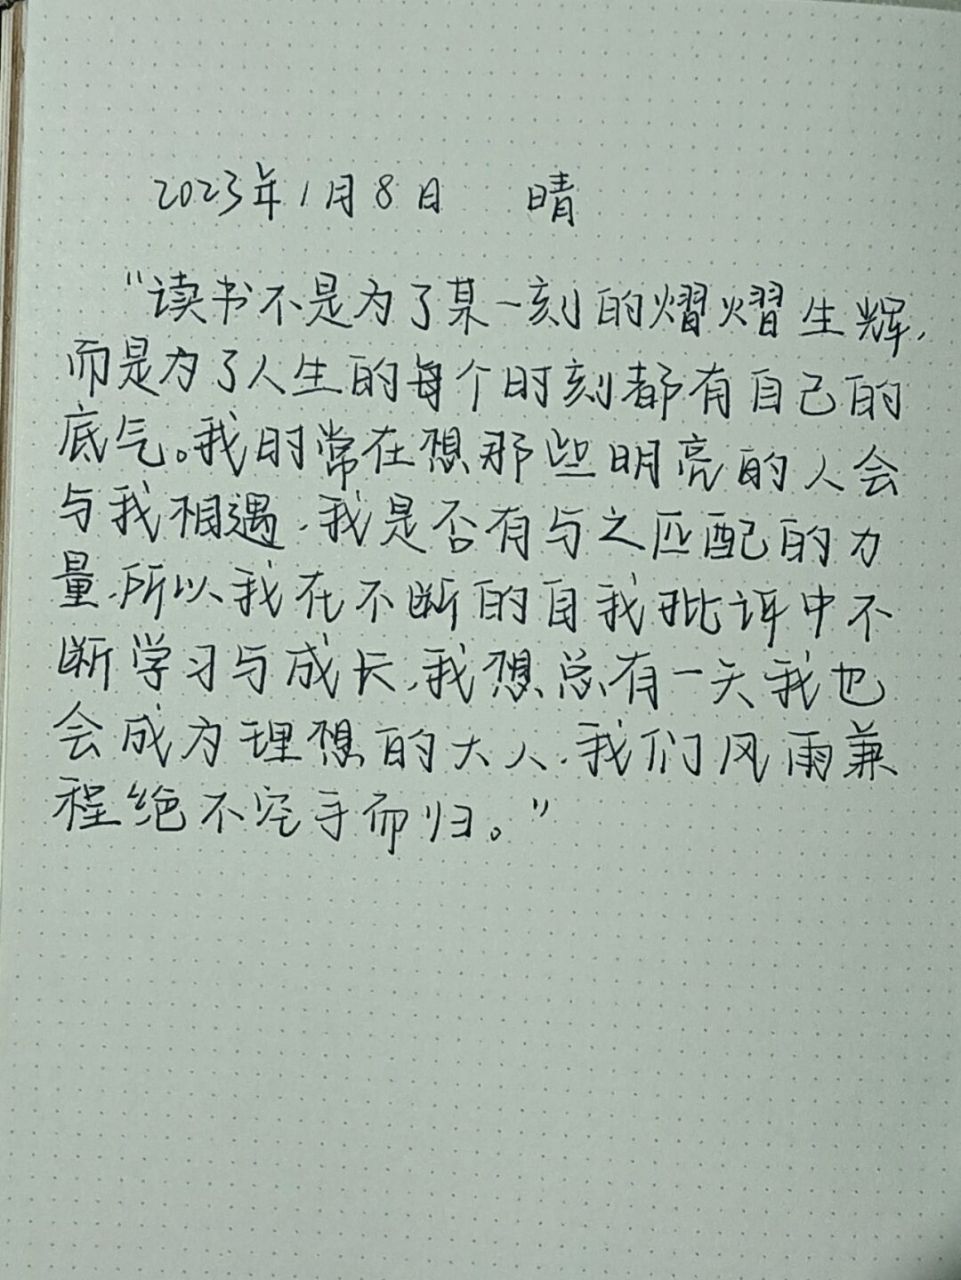 2023年1月8日 晴
“读书不是为了某一刻的熠熠生辉,
而是为了人生的每个时刻都有自己的
底气。我时常在想那些明亮的人会
与我相遇,我是否有与之匹配的力
量,所以我在不断的自我批评中不
断学习与成长,我想总有一天我也
会成为理想的大人,我们风雨兼
程绝不空手而归。”